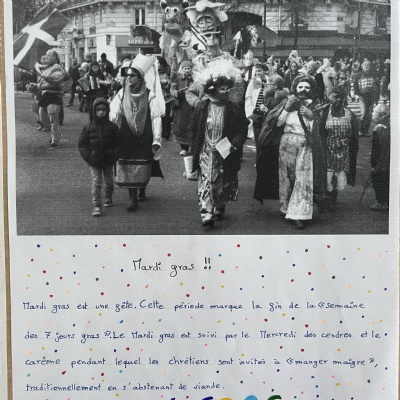 Mardi gras !!
Mardi gras est une fête. Cette période marque la fin de la « semaine
des 7 jours gras ». Le Mardi gras est suivi par le Mercredi des cendres et le
carême pendant lequel les chrétiens sont invités à « manger maigre »,
traditionnellement en s'abstenant de viande.